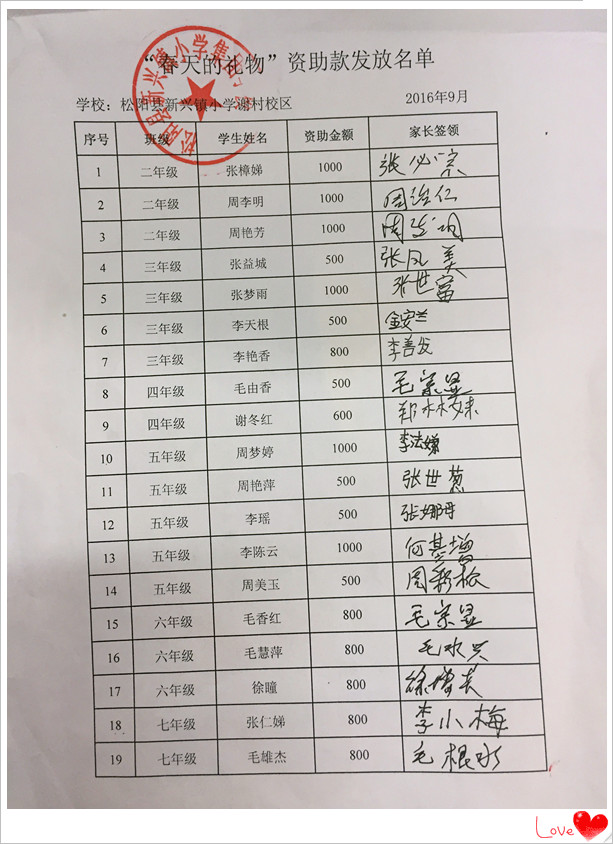 “春天的礼物”资助款发放名单
学校：松阳县新兴镇小学谢村校区 2016年9月
序号 班级 学生姓名 资助金额 家长签领
1 二年级 张樟娣 1000 张必宗
2 二年级 周李明 1000
3 二年级 周艳芳 1000
4 三年级 张益城 500 张凤美
5 三年级 张梦雨 1000 张世富
6 三年级 李天根 500 金安兰
7 三年级 李艳香 800 李善发
8 四年级 毛由香 500 毛宗显
9 四年级 谢冬红 600 郑林妹
10 五年级 周梦婷 1000 李法娣
11 五年级 周艳萍 500 张世葱
12 五年级 李瑶 500 张娜丹
13 五年级 李陈云 1000 何基增
14 五年级 周美玉 500 周彩松
15 六年级 毛香红 800 毛宗显
16 六年级 毛慧萍 800 毛水兴
17 六年级 徐瞳 800
18 七年级 张仁娣 800 李小梅
19 七年级 毛雄杰 800 毛根水
Love